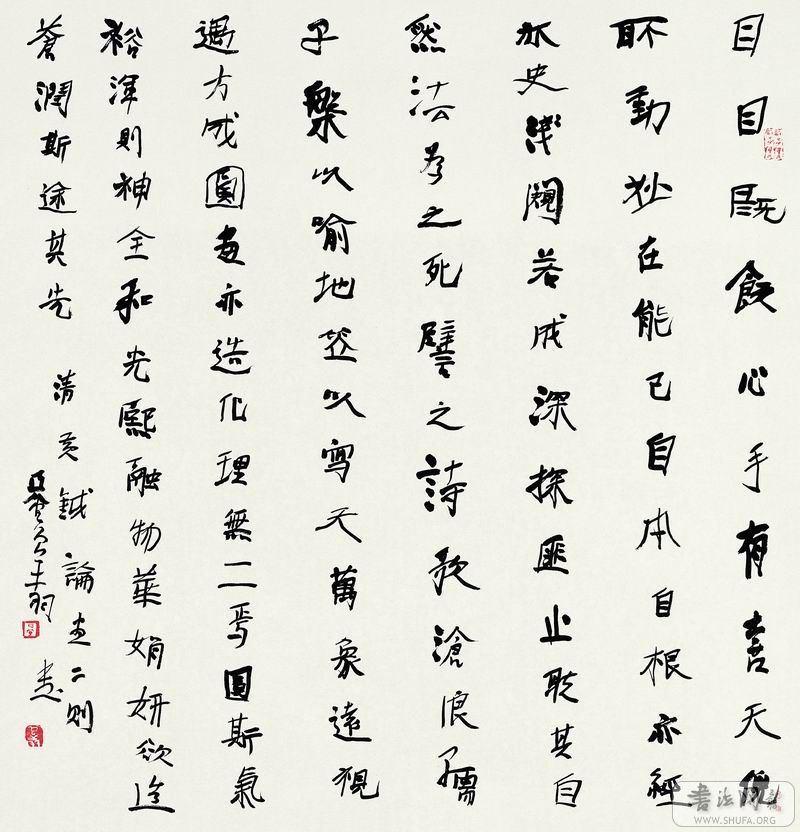 目目既飫心手有喜天倪
所動妙在能已自本自根亦經
亦史淺闚若成深探匪止聽其自
然法為之死譬之詩歌滄浪孺
子槃以喻地笠以寫天萬象遠視
遇方成圓畫亦造化理無二焉圓斯氣
裕渾則神全和光熙融物華娟妍欲造
蒼潤斯途其先
清黄鉞論畫二則
書法网
WWW.SHUFA.ORG